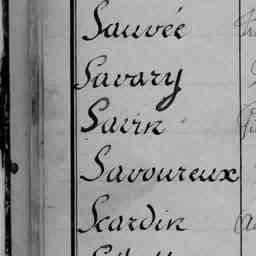 Sauvée
Savary
Savin
Savoureux
Scardin